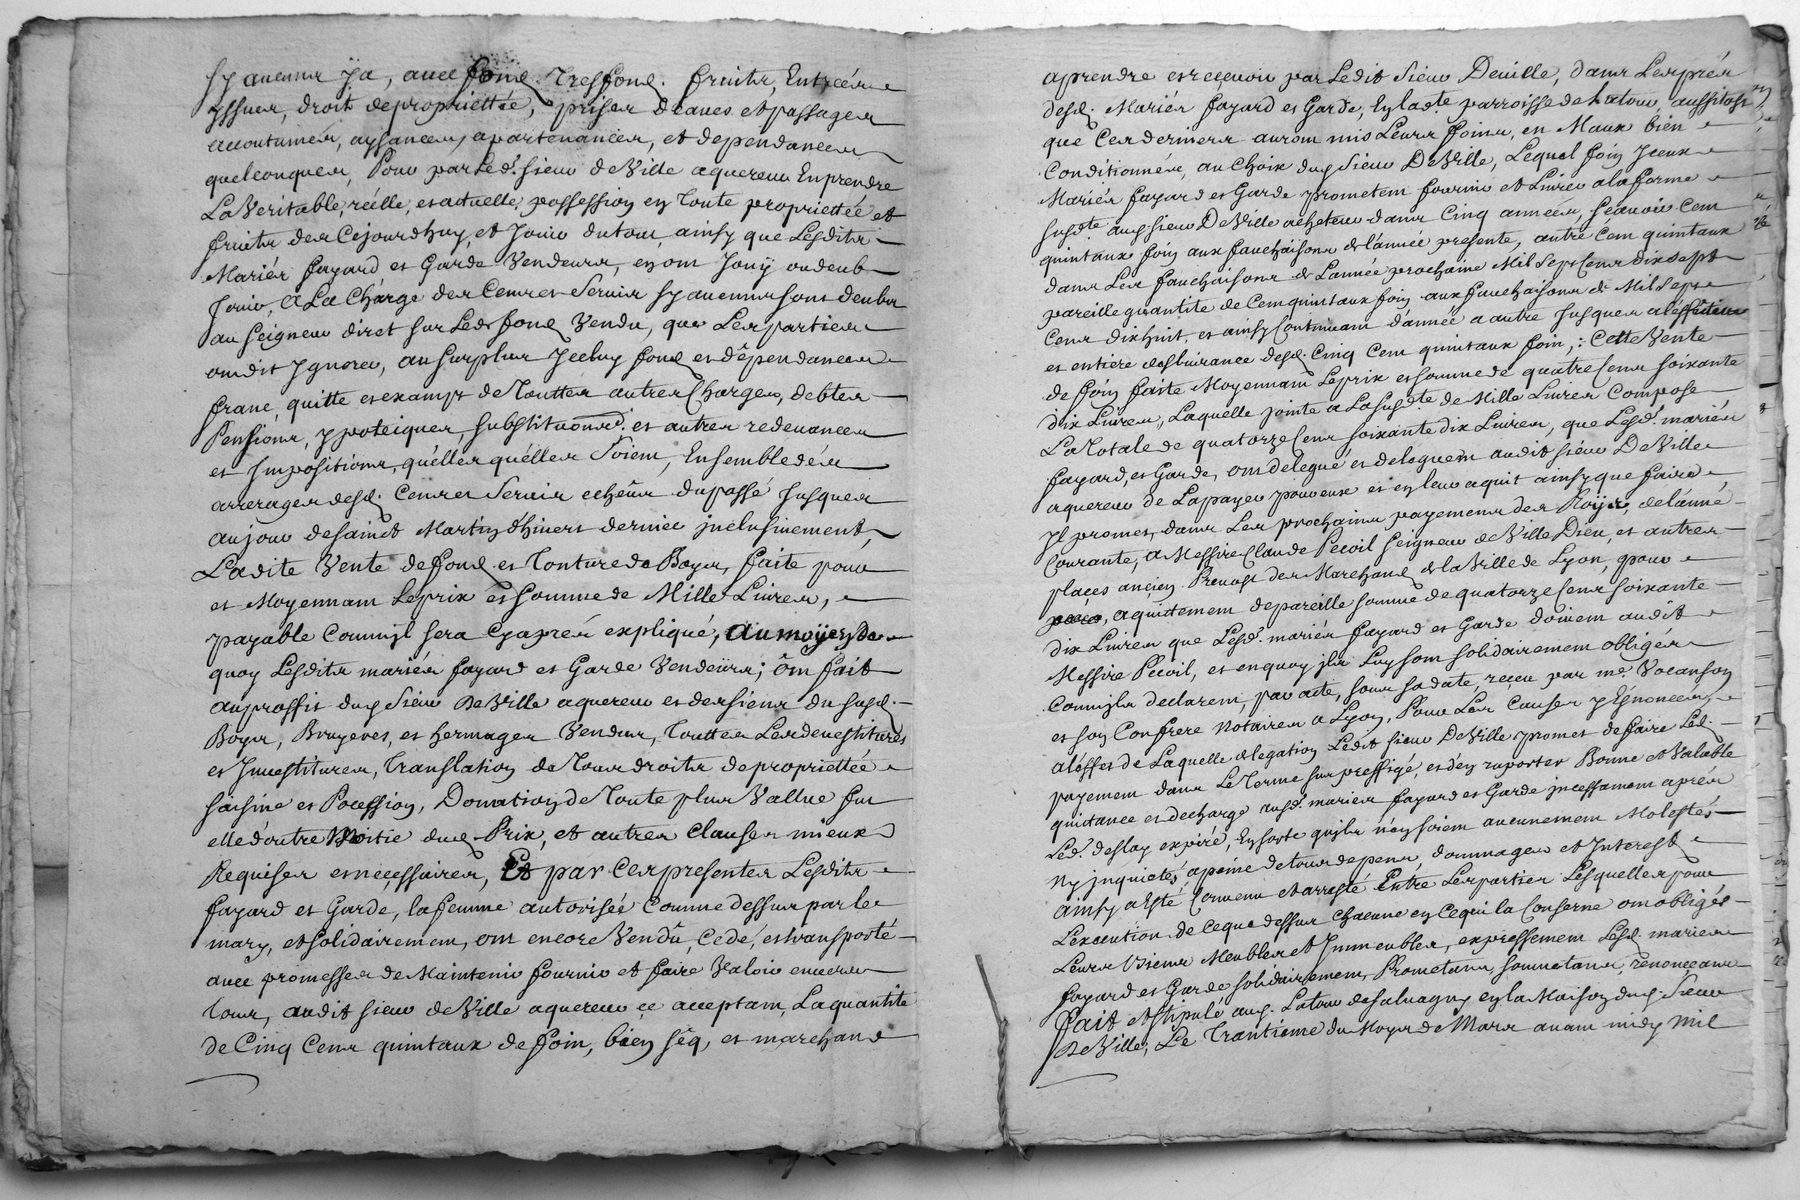 sy aucuns ya, avec fond Tresfond. fruits, Entrées
yssues, droit de propriettée, prises d'eaues et passages
accoutumés, aysances, apartenances, et dependances
quelconques, Pour par Led. sieur de Ville aquereur En prendre
La Veritable, réélle, et actuelle, possession en Toute propriettée et
fruits des Cejourdhuy, et Jouir du tout, ainsy que Lesdits
Mariés fayard et Garde Vendeurs, en ont Jouÿ ou deub
Jouir, A La Charge des Cens et Servis sy aucuns sont deubs
au Seigneur diret sur Led. fond Vendu, que Les parties
ont dit Ignorer, au surplus Jceluy fond et dépendances
franc, quitte et exampt de Touttes autres Charges, debtes
Pensions, ypoteiques, substitutions et autres redevances
et Jmpositions, quélles quélles Soient, Ensemble dés
arrerages desd. Cens et Servis echeûs du passé Jusques
au jour de saint Martin d'hivert dernier jnclusivement,
Ladite Vente de fond et Tonture de Boys, faite pour
et Moyennant Le prix et somme de Mille Livres,
payable Comm'jl sera Cyaprés expliqué, au moÿen de
quoy Lesdits mariés fayard et Garde Vendeurs; ônt fait
au proffit dud. Sieur De Ville aquereur et des siens du susd.
Boys, Bruyeres, et hermages Vendus, Touttes Les devestitures
et Jnvestitures, Translation de Tous droits de propriettée
saisine et Pocession, Donation de Toute plus Vallue fut
elle d'outre Moitié dud. Prix, et autres clauses mieux
Requises et necessaires, Et par Ces presentes Lesdits
fayard et Garde, la femme autorisée Comme dessus par le
mary, et solidairement, ont encore Vendû, Cedé, et transporté
avec promesses de Maintenir fournir et faire Valoir envers
Tous, audit sieur de Ville aquereur ce acceptant, La quantité
de Cinq Cens quintaux de foin, bien séq, et marchand
aprendre et recevoir par Ledit Sieur Deville, dans Les prés
desd. Mariés fayard et Garde, En lad.te parroisse de Latour, aussitost
que Ces derniers auront mis Leurs foins, en Maux bien
Conditionnés, au Choix dud. Sieur DeVille, Lequel foin Jceux
Mariés fayard et Garde prometent fournir et Livrer a la forme
susd.te aud. sieur DeVille acheteur dans Cinq années, Scavoir Cent
quintaux foin aux fauchaisons de l'année presente, autre Cent quintaux
dans Les fauchaisons de L'année prochaine Mil Sept Cens dix sept
pareille quantité de Cent quintaux foin aux fauchaisons de Mil Sept
Cens dixhuit, et ainsy Continuant d'année a autre Jusques a l'effective
et entiere deslivrance desd. Cinq Cent quintaux foin; Cette Vente
de foin faite Moyennant Le prix et somme de quatre Cens soixante
dix Livres, Laquelle jointe a La susd.te de Mille Livres Compose
La Totale de quatorze Cens soixante dix Livres, que Lesd. mariés
fayard, et Garde, ont delegué et deleguent audit sieur De Ville
aquereur de La payer pour eux et en leur aquit ainsy que faire
Jl promet, dans Les prochains payemens des Roÿs, de l'anné
Courante, a Messire Claude Pecoil Seigneur de Ville Dieu, et autres
places ancien Prevost des Marchand de la Ville de Lyon, pour
aquitement de pareille somme de quatorze Cens soixante
dix Livres que Lesd. mariés fayard et Garde doivent audit
Messire Pécoil, et en quoy jls Luy sont solidairement obligés
Comm'jls declarent, par acte, sous sa date, reçeu par me. Vocanson
et son Confrere Notaires a Lyon, Pour Les Causes y Enoncées,
a l'effet de Laquelle delegation Ledit sieur DeVille promet de faire Led.
payement dans Le Terme sus preffigé, et d'en raporter Bonne et Valable
quictance et decharge ausd. mariés fayard et Garde jncessament aprés
Led. deslay expiré, En sorte qu'jls n'en soient aucunement Molestés
ny jnquietés, a peine de tous depens, dommages et Jnterest
ainsy a Esté Convenu et arresté Entre Les parties Lesquelles pour
L'execution de Ceque dessus Chacune en Cequi la Conserne ont obligés
Leurs Biens Meubles et Jmmeubles, expressement Lesd. mariés
fayard et Garde solidairement, Prometans, soumetans, renonçans
fait et stipulé aud. Latour de salvagny en la Maison dud. Sieur
DeVille, Le Trantieme du Moys de Mars avant midy Mil